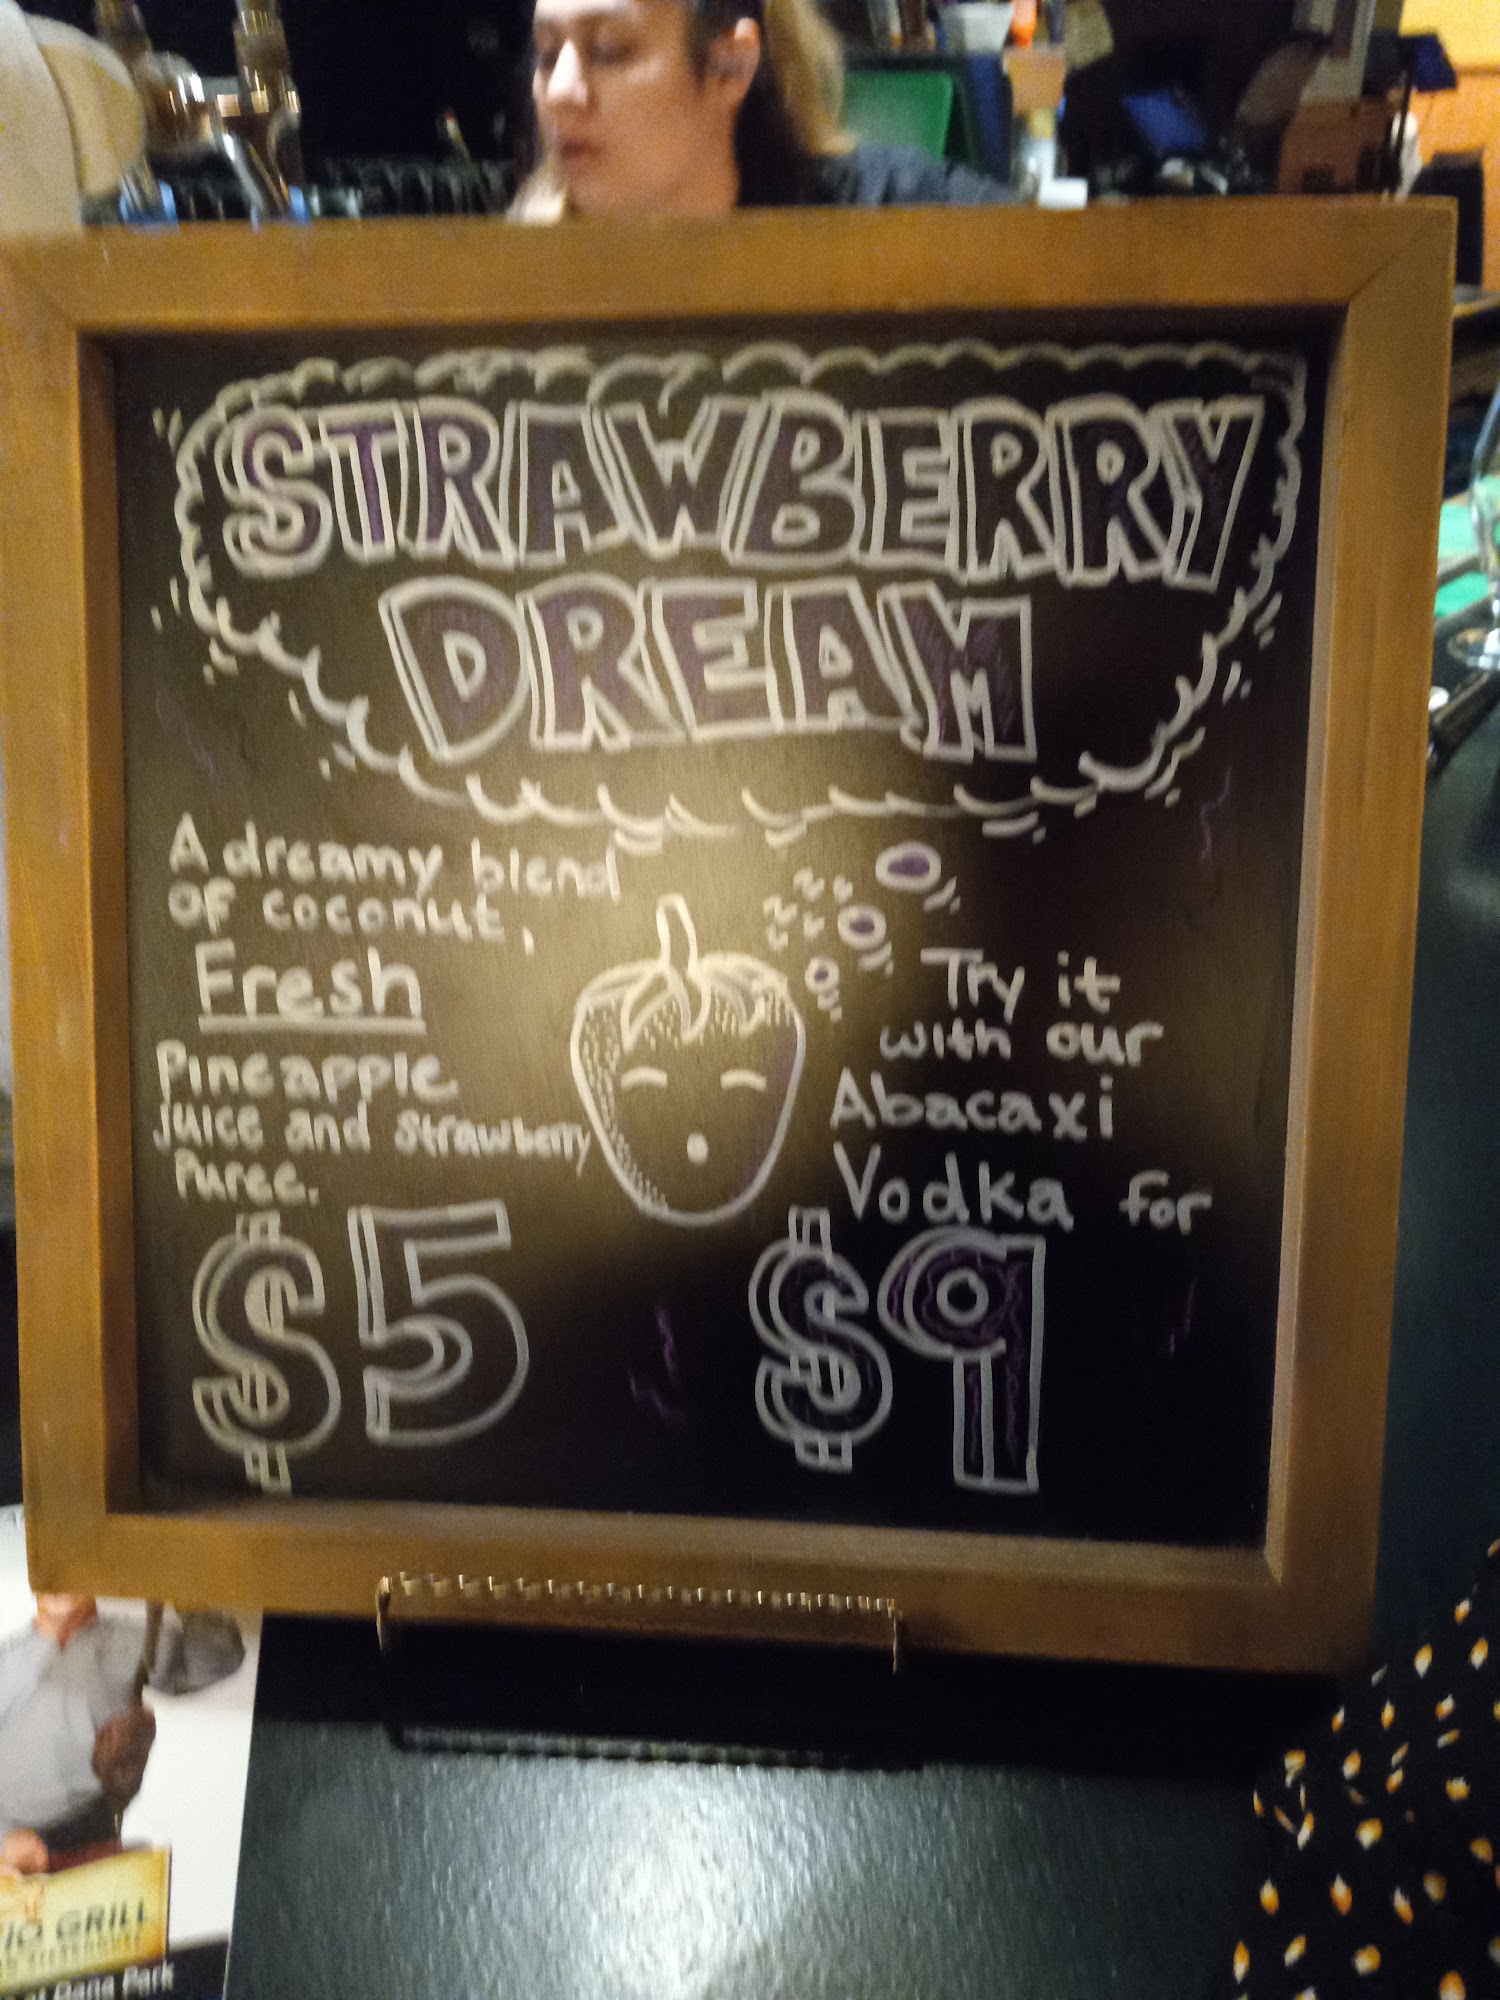 STRAWBERRY
DREAM
A dreamy blend
of coconut,
Fresh
Pineapple
juice and strawberry
Puree.
$5
Try it
with our
Abacaxi
Vodka for
$9
GRILL
Dana Park